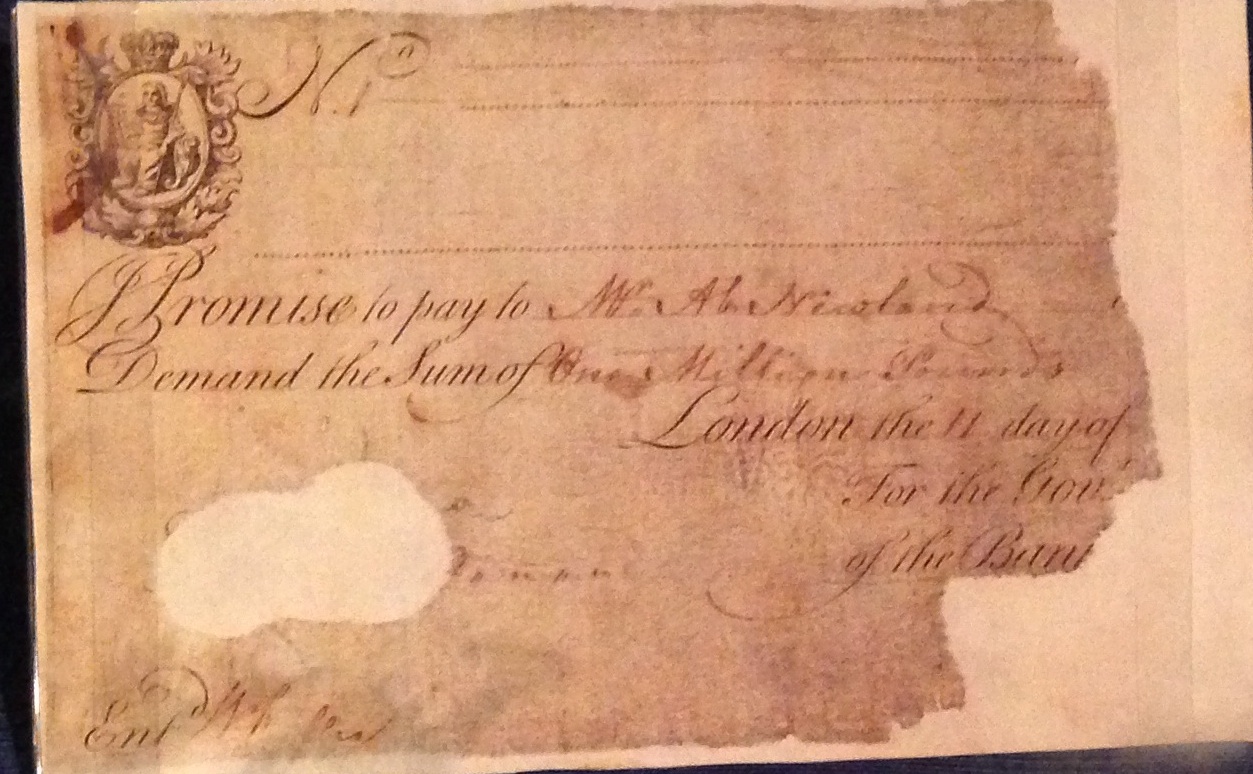 No. 1
I Promise to pay to Mr. Ab. Newland
Demand the Sum of One Million Pounds
London the 11 day of
For the Gov.r
of the Bank
Ent.d